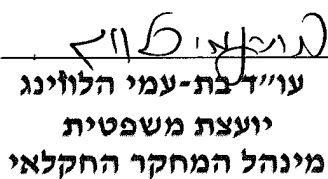 עו"ד בת-עמי הלוזינג
יועצת משפטית
מינהל המחקר החקלאי